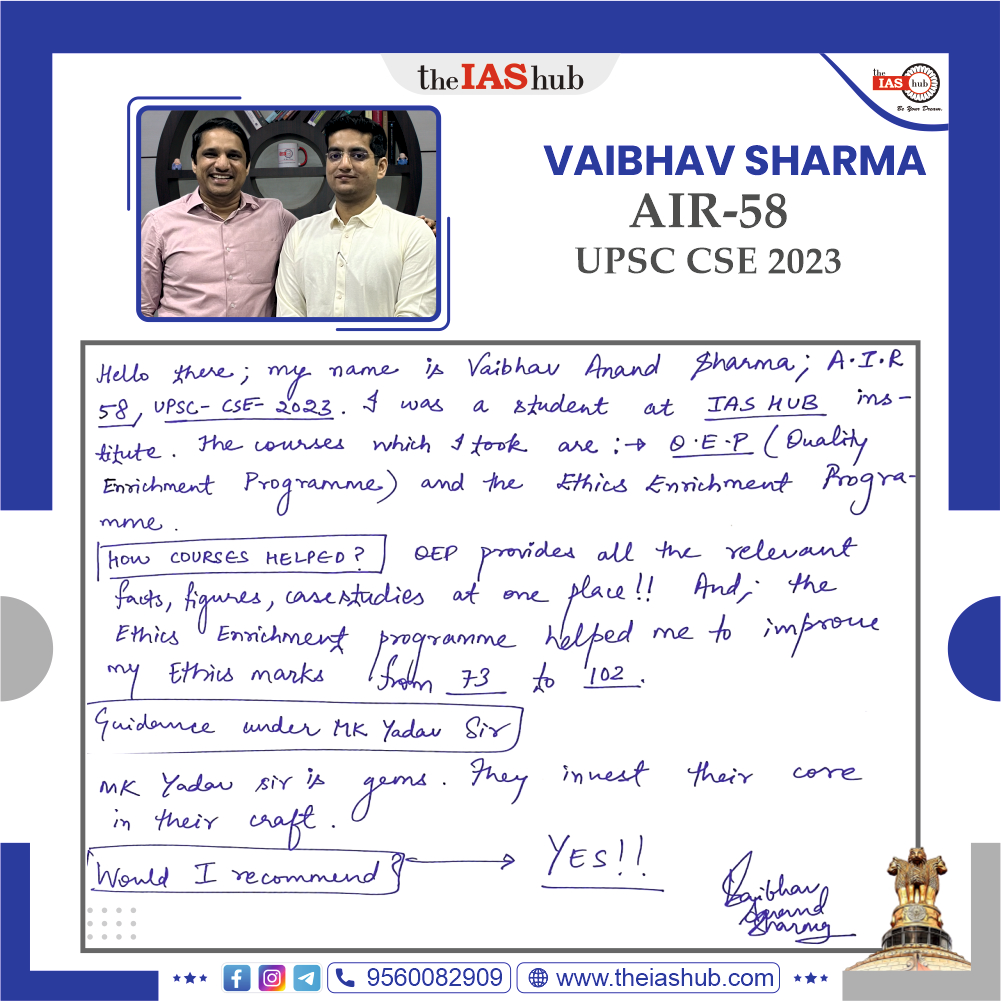 the IAS hub
the
IAS hub
Be Your Dream.
VAIBHAV SHARMA
AIR-58
UPSC CSE 2023
Hello there; my name is Vaibhav Anand Sharma; A.I.R
58, UPSC- CSE- 2023. I was a student at IAS HUB ins-
titute. The courses which I took are :→ Q.E.P (Quality
Enrichment Programme) and the Ethics Enrichment Progra-
mme.
HOW COURSES HELPED? QEP provides all the relevant
facts, figures, casestudies at one place!! And; the
Ethics Enrichment programme helped me to improve
my Ethics marks from 73 to 102.
Guidance under MK Yadav Sir
MK Yadav sir is gems. They invest their core
in their craft.
Would I recommend? → YES!!
Vaibhav
Anand
Sharma
9560082909 www.theiashub.com